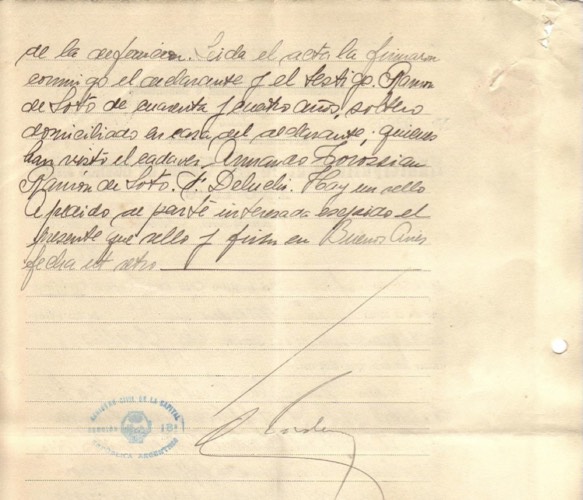 de la defuncion. Leida el acta la firmaron
conmigo el declarante y el testigo. Ramon
de Soto de cuarenta y cuatro años, soltero
domiciliado en casa del declarante; quienes
han visto el cadaver. Armando
Ramón de Soto. F. Deluchi. Hay un sello
A pedido de parte interesada expido el
presente que sello y firmo en Buenos Aires
fecha ut retro
REGISTRO CIVIL DE LA CAPITAL
SECCIÓN 18ª
REPUBLICA ARGENTINA